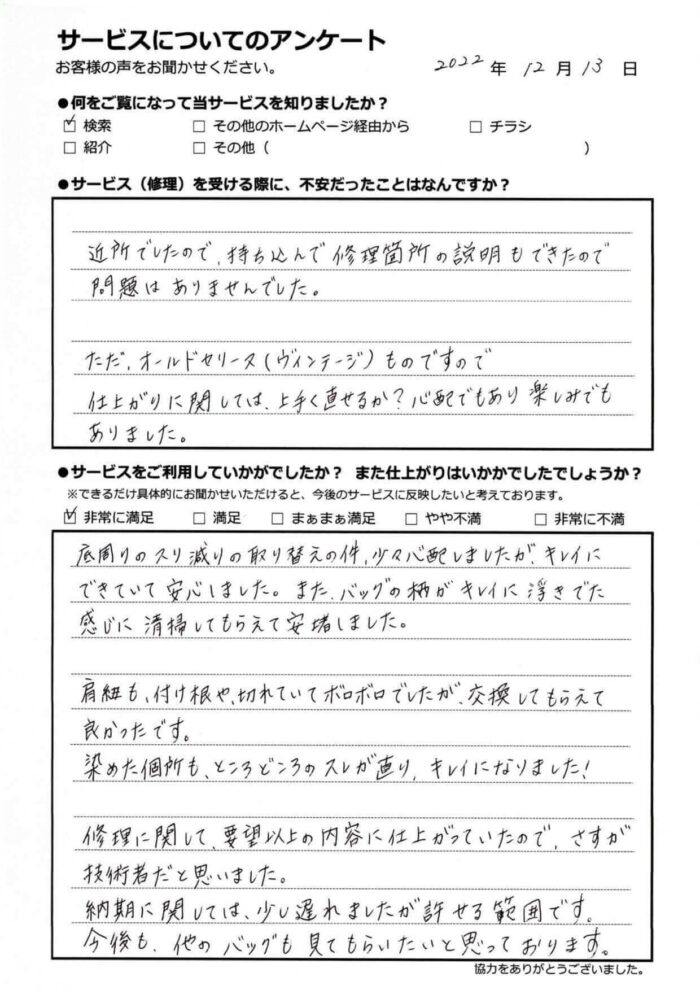 サービスについてのアンケート
お客様の声をお聞かせください。
2022 年 12 月 13 日
●何をご覧になって当サービスを知りましたか？
☑ 検索 □ その他のホームページ経由から □ チラシ
□ 紹介 □ その他（ ）
●サービス（修理）を受ける際に、不安だったことはなんですか？
近所でしたので、持ち込んで修理箇所の説明もできたので
問題はありませんでした。
ただ、オールドセリース(ヴィンテージ)ものですので
仕上がりに関しては、上手く直せるか？心配でもあり楽しみでも
ありました。
●サービスをご利用していかがでしたか？ また仕上がりはいかかでしたでしょうか？
※できるだけ具体的にお聞かせいただけると、今後のサービスに反映したいと考えております。
☑ 非常に満足 □ 満足 □ まぁまぁ満足 □ やや不満 □ 非常に不満
底周りのスリ減りの取り替えの件、少々心配しましたが、キレイに
できていて安心しました。また、バッグの柄がキレイに浮きでた
感じに清掃してもらえて安堵しました。
肩紐も、付け根や、切れていてボロボロでしたが、交換してもらえて
良かったです。
染めた個所も、ところどころのスレが直り、キレイになりました！
修理に関して、要望以上の内容に仕上がっていたので、さすが
技術者だと思いました。
納期に関しては、少し遅れましたが許せる範囲です。
今後も、他のバッグも見てもらいたいと思っております。
協力をありがとうございました。